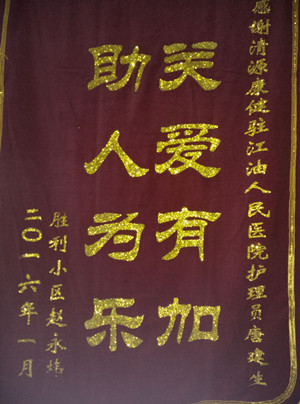 感谢清源康健驻江油人民医院护理员唐建生
关爱有加
助人为乐
胜利小区赵永炜
二〇一六年一月